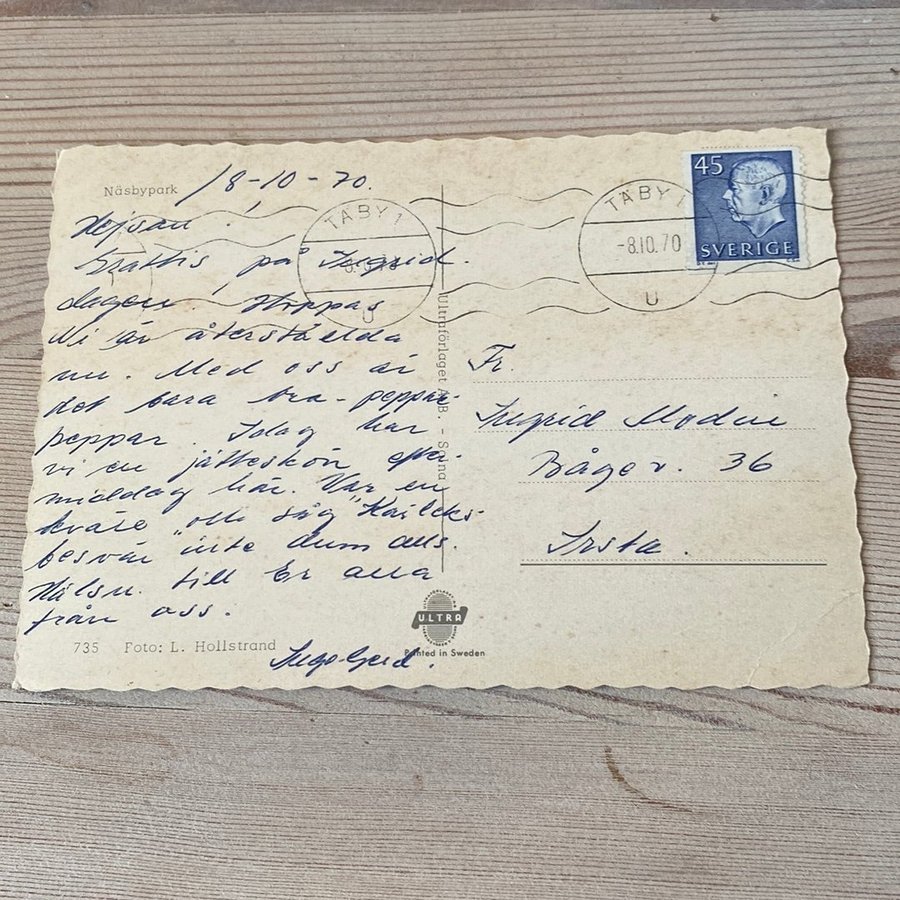 Näsbypark
/8-10-70.
Hejsan!
Grattis på Ingrid
dagen, Hoppas
Ni är återställda
nu. Med oss är
det bara bra - peppar
peppar. Idag har
vi en jätteskön efter-
middag här. Var en
kväll "och såg "Kärleks-
besvär" inte dum alls.
Hälsn. till Er alla
från oss.
735 Foto: L. Hollstrand
Ultraförlaget A.B. - Solna
ULTRA
Printed in Sweden
TÄBY 1
U
TÄBY 1
-8.10.70
U
45
SVERIGE
Fr.
Ingrid Modin
Bågev. 36
Irsta.